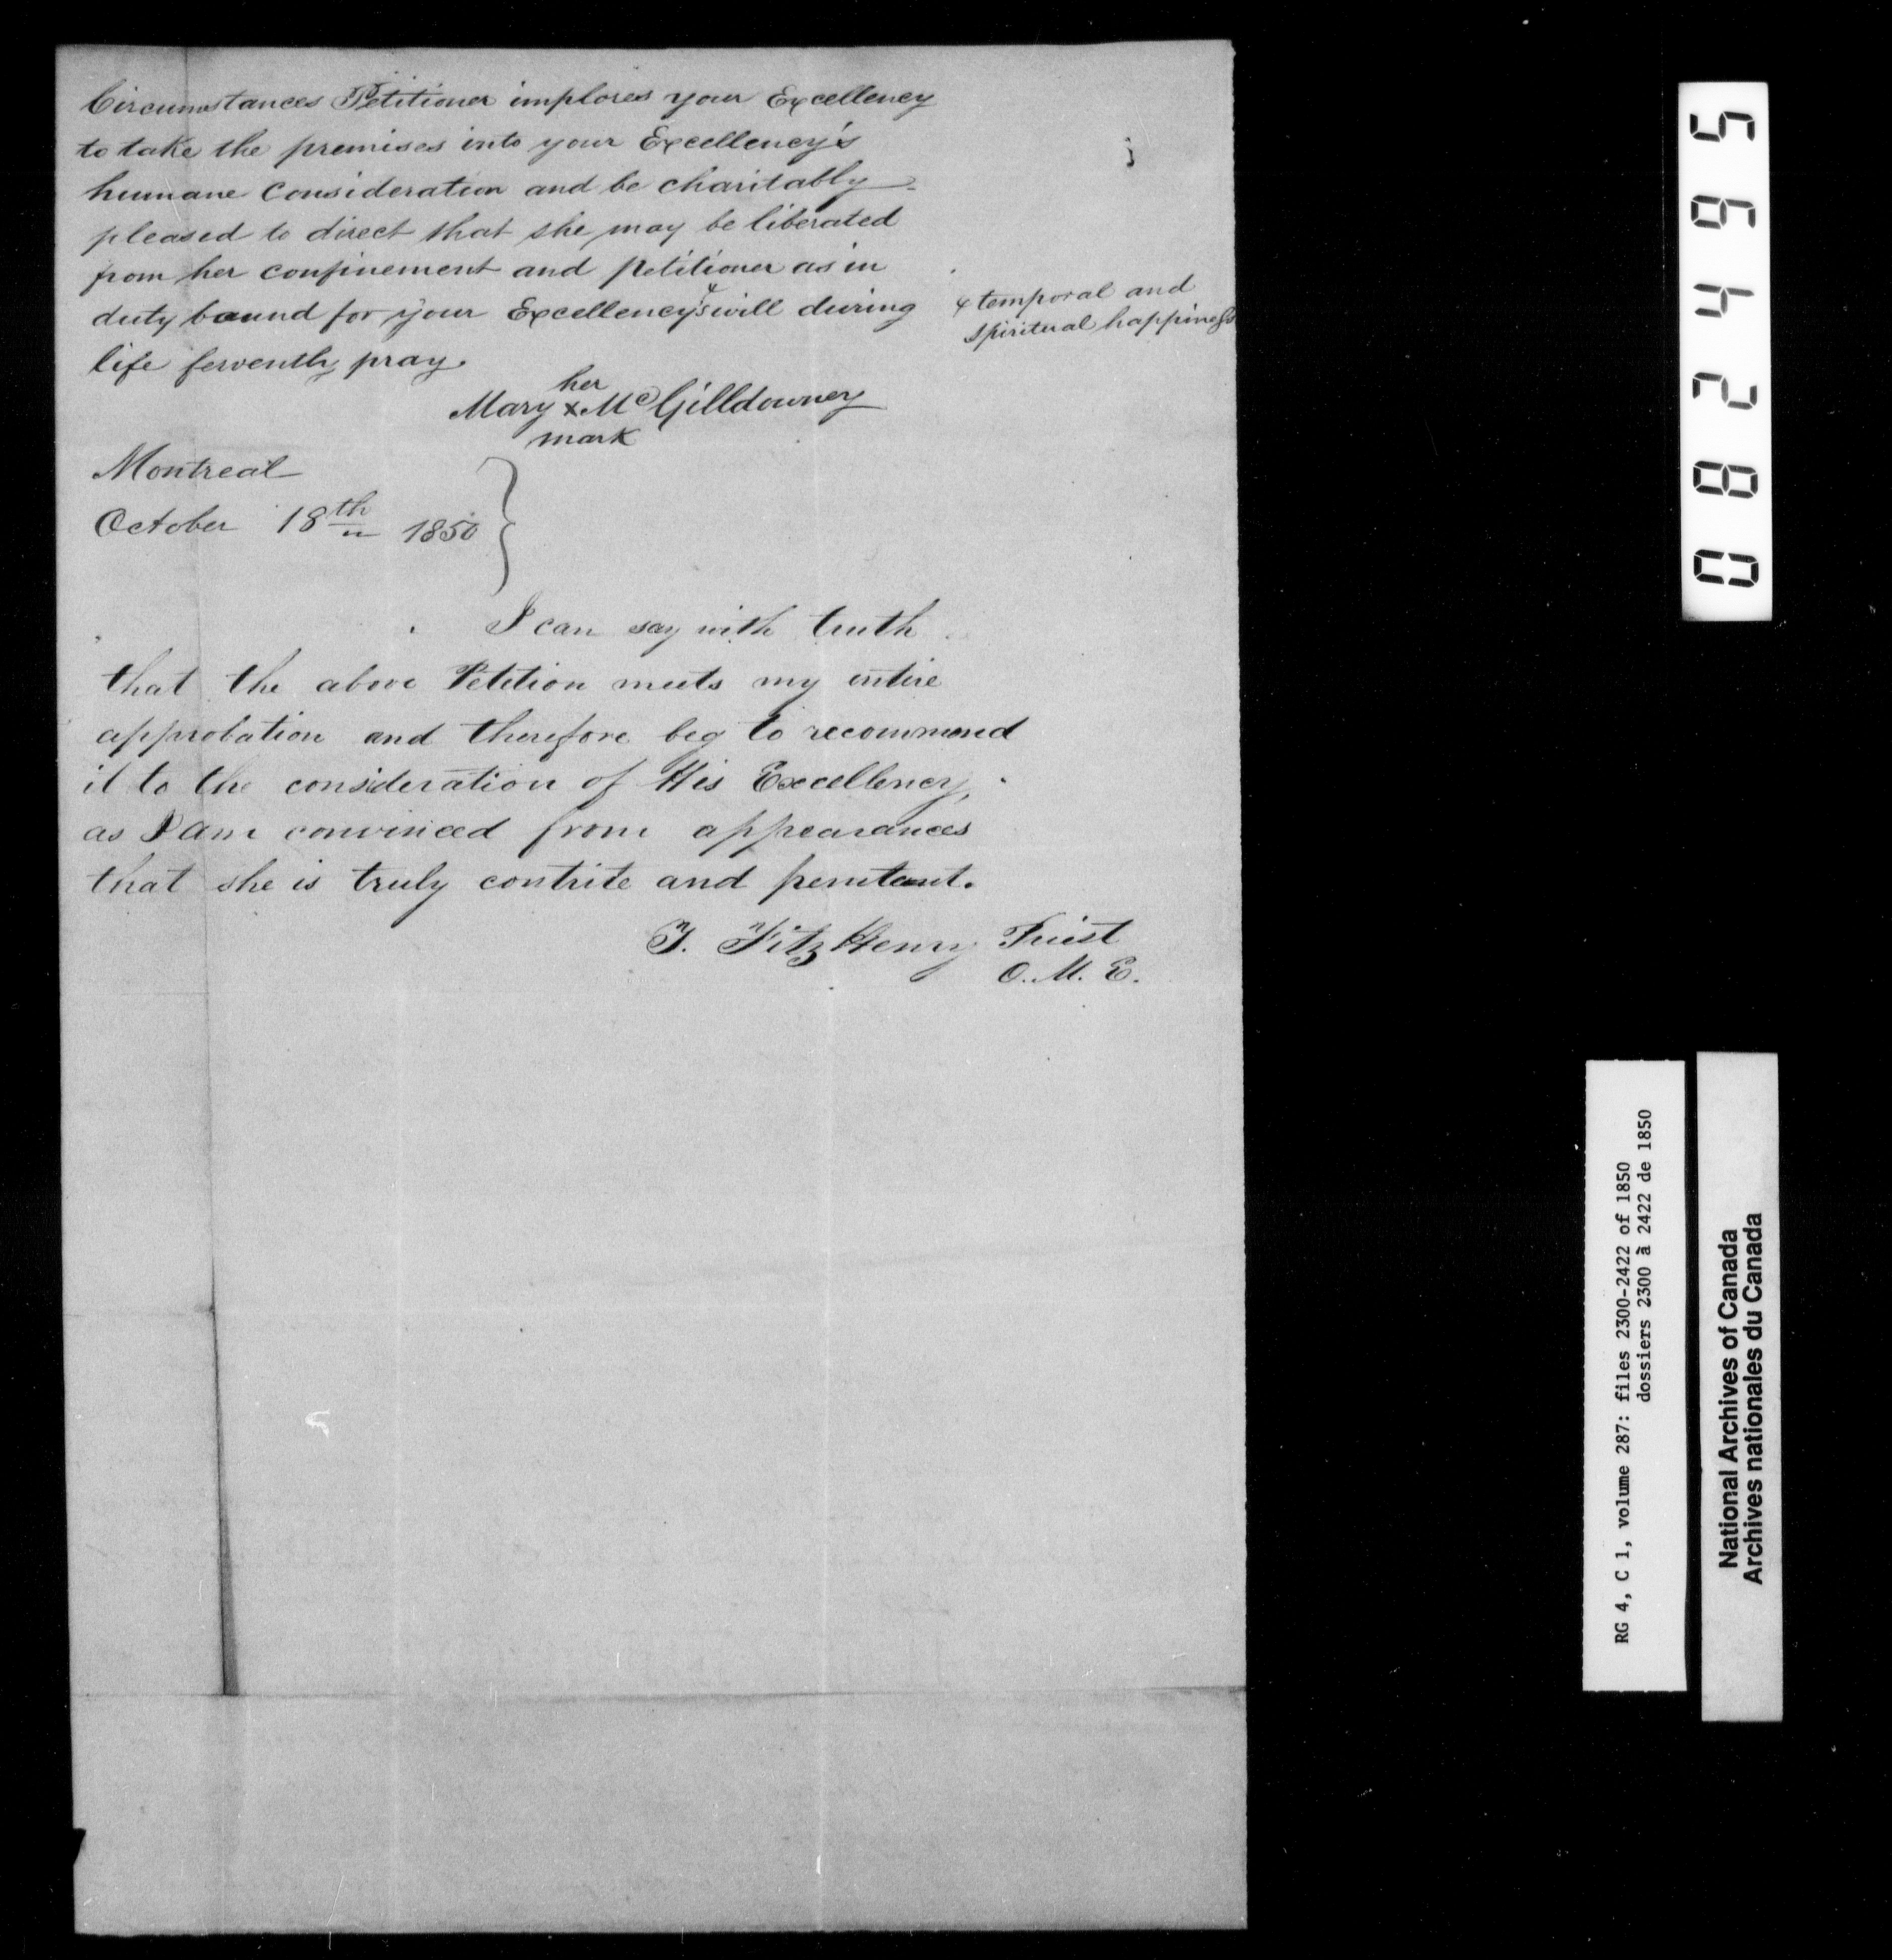 Circumstances Petitioner implores your Excellency
to take the premises into your Excellency's
humane Consideration and be charitably
pleased to direct that she may be liberated
from her confinement and petitioner as in
duty bound for your Excellency's will during
& temporal and
spiritual happiness
life fervently pray.
her
Mary x McGilldowney
mark
Montreal
October 18th 1850
I can say with truth
that the above Petition meets my entire
approbation and therefore beg to recommend
it to the consideration of His Excellency,
as I am convinced from appearances
that she is truly contrite and penitent.
T. FitzHenry Priest
O. M. E.
082495
RG 4, C 1, volume 287: files 2300-2422 of 1850
dossiers 2300 à 2422 de 1850
National Archives of Canada
Archives nationales du Canada